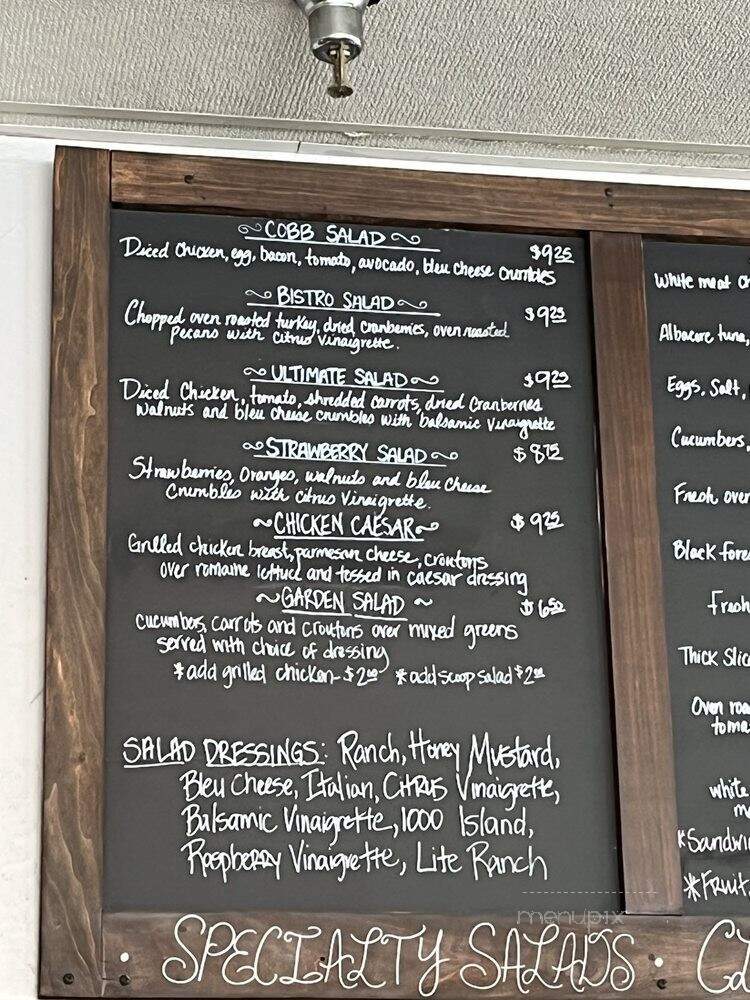 COBB SALAD
$9.25
Diced Chicken, egg, bacon, tomato, avocado, bleu cheese crumbles
BISTRO SALAD
$9.25
Chopped oven roasted turkey, dried cranberries, oven roasted
pecans with citrus vinaigrette.
ULTIMATE SALAD
$9.25
Diced Chicken, tomato, shredded carrots, dried cranberries
walnuts and bleu cheese crumbles with balsamic vinaigrette
STRAWBERRY SALAD
$8.75
Strawberries, Oranges, walnuts and bleu cheese
crumbles with citrus vinaigrette.
~CHICKEN CAESAR~
$9.25
Grilled chicken breast, parmesan cheese, croutons
over romaine lettuce and tossed in caesar dressing
~GARDEN SALAD~
$6.50
cucumbers, carrots and croutons over mixed greens
served with choice of dressing
*add grilled chicken-$2.00 *add scoop salad $2.00
SALAD DRESSINGS: Ranch, Honey Mustard,
Bleu Cheese, Italian, CITRUS Vinaigrette,
Balsamic Vinaigrette, 1000 Island,
Raspberry Vinaigrette, Lite Ranch
SPECIALTY SALADS
White meat
Albacore tuna,
Eggs, Salt,
Cucumbers,
Fresh over
Black
Fresh
Thick
Oven
white
*Fruit
menupix